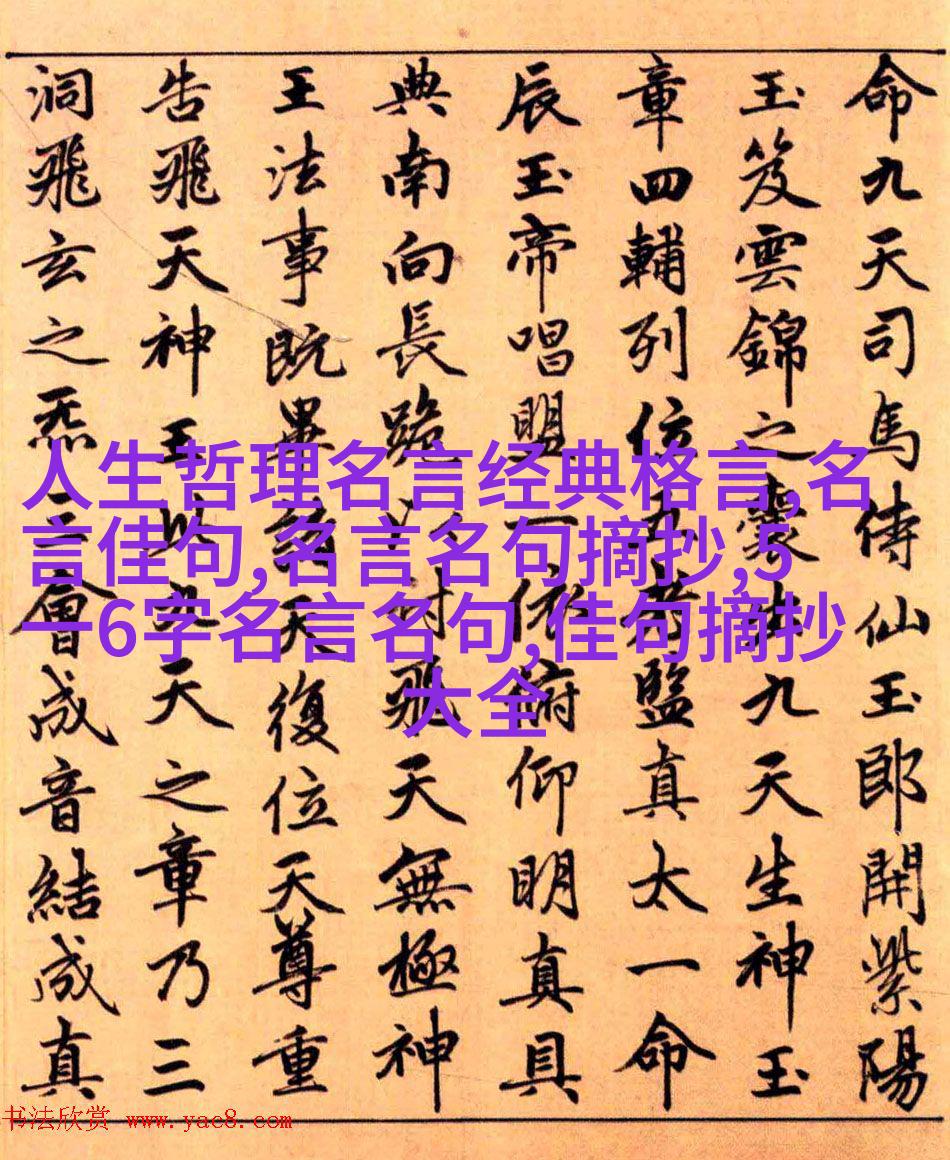 命九天司馬侍仙玉郎開紫陽
玉笈雲錦之囊出九天生神玉
章四輔列位五老監真太一命
辰玉帝唱盟一依俯仰明真具
典南向長跪以付飛天無極神
王法事既畢諸天復位天尊重
告飛天神王此九天之章乃三
洞飛玄之炁三會成音結成真
人生哲理名言经典格言,名
言佳句,名言名句摘抄,5
一6字名言名句,佳句摘抄
大全
书法欣赏 www.yac8.com